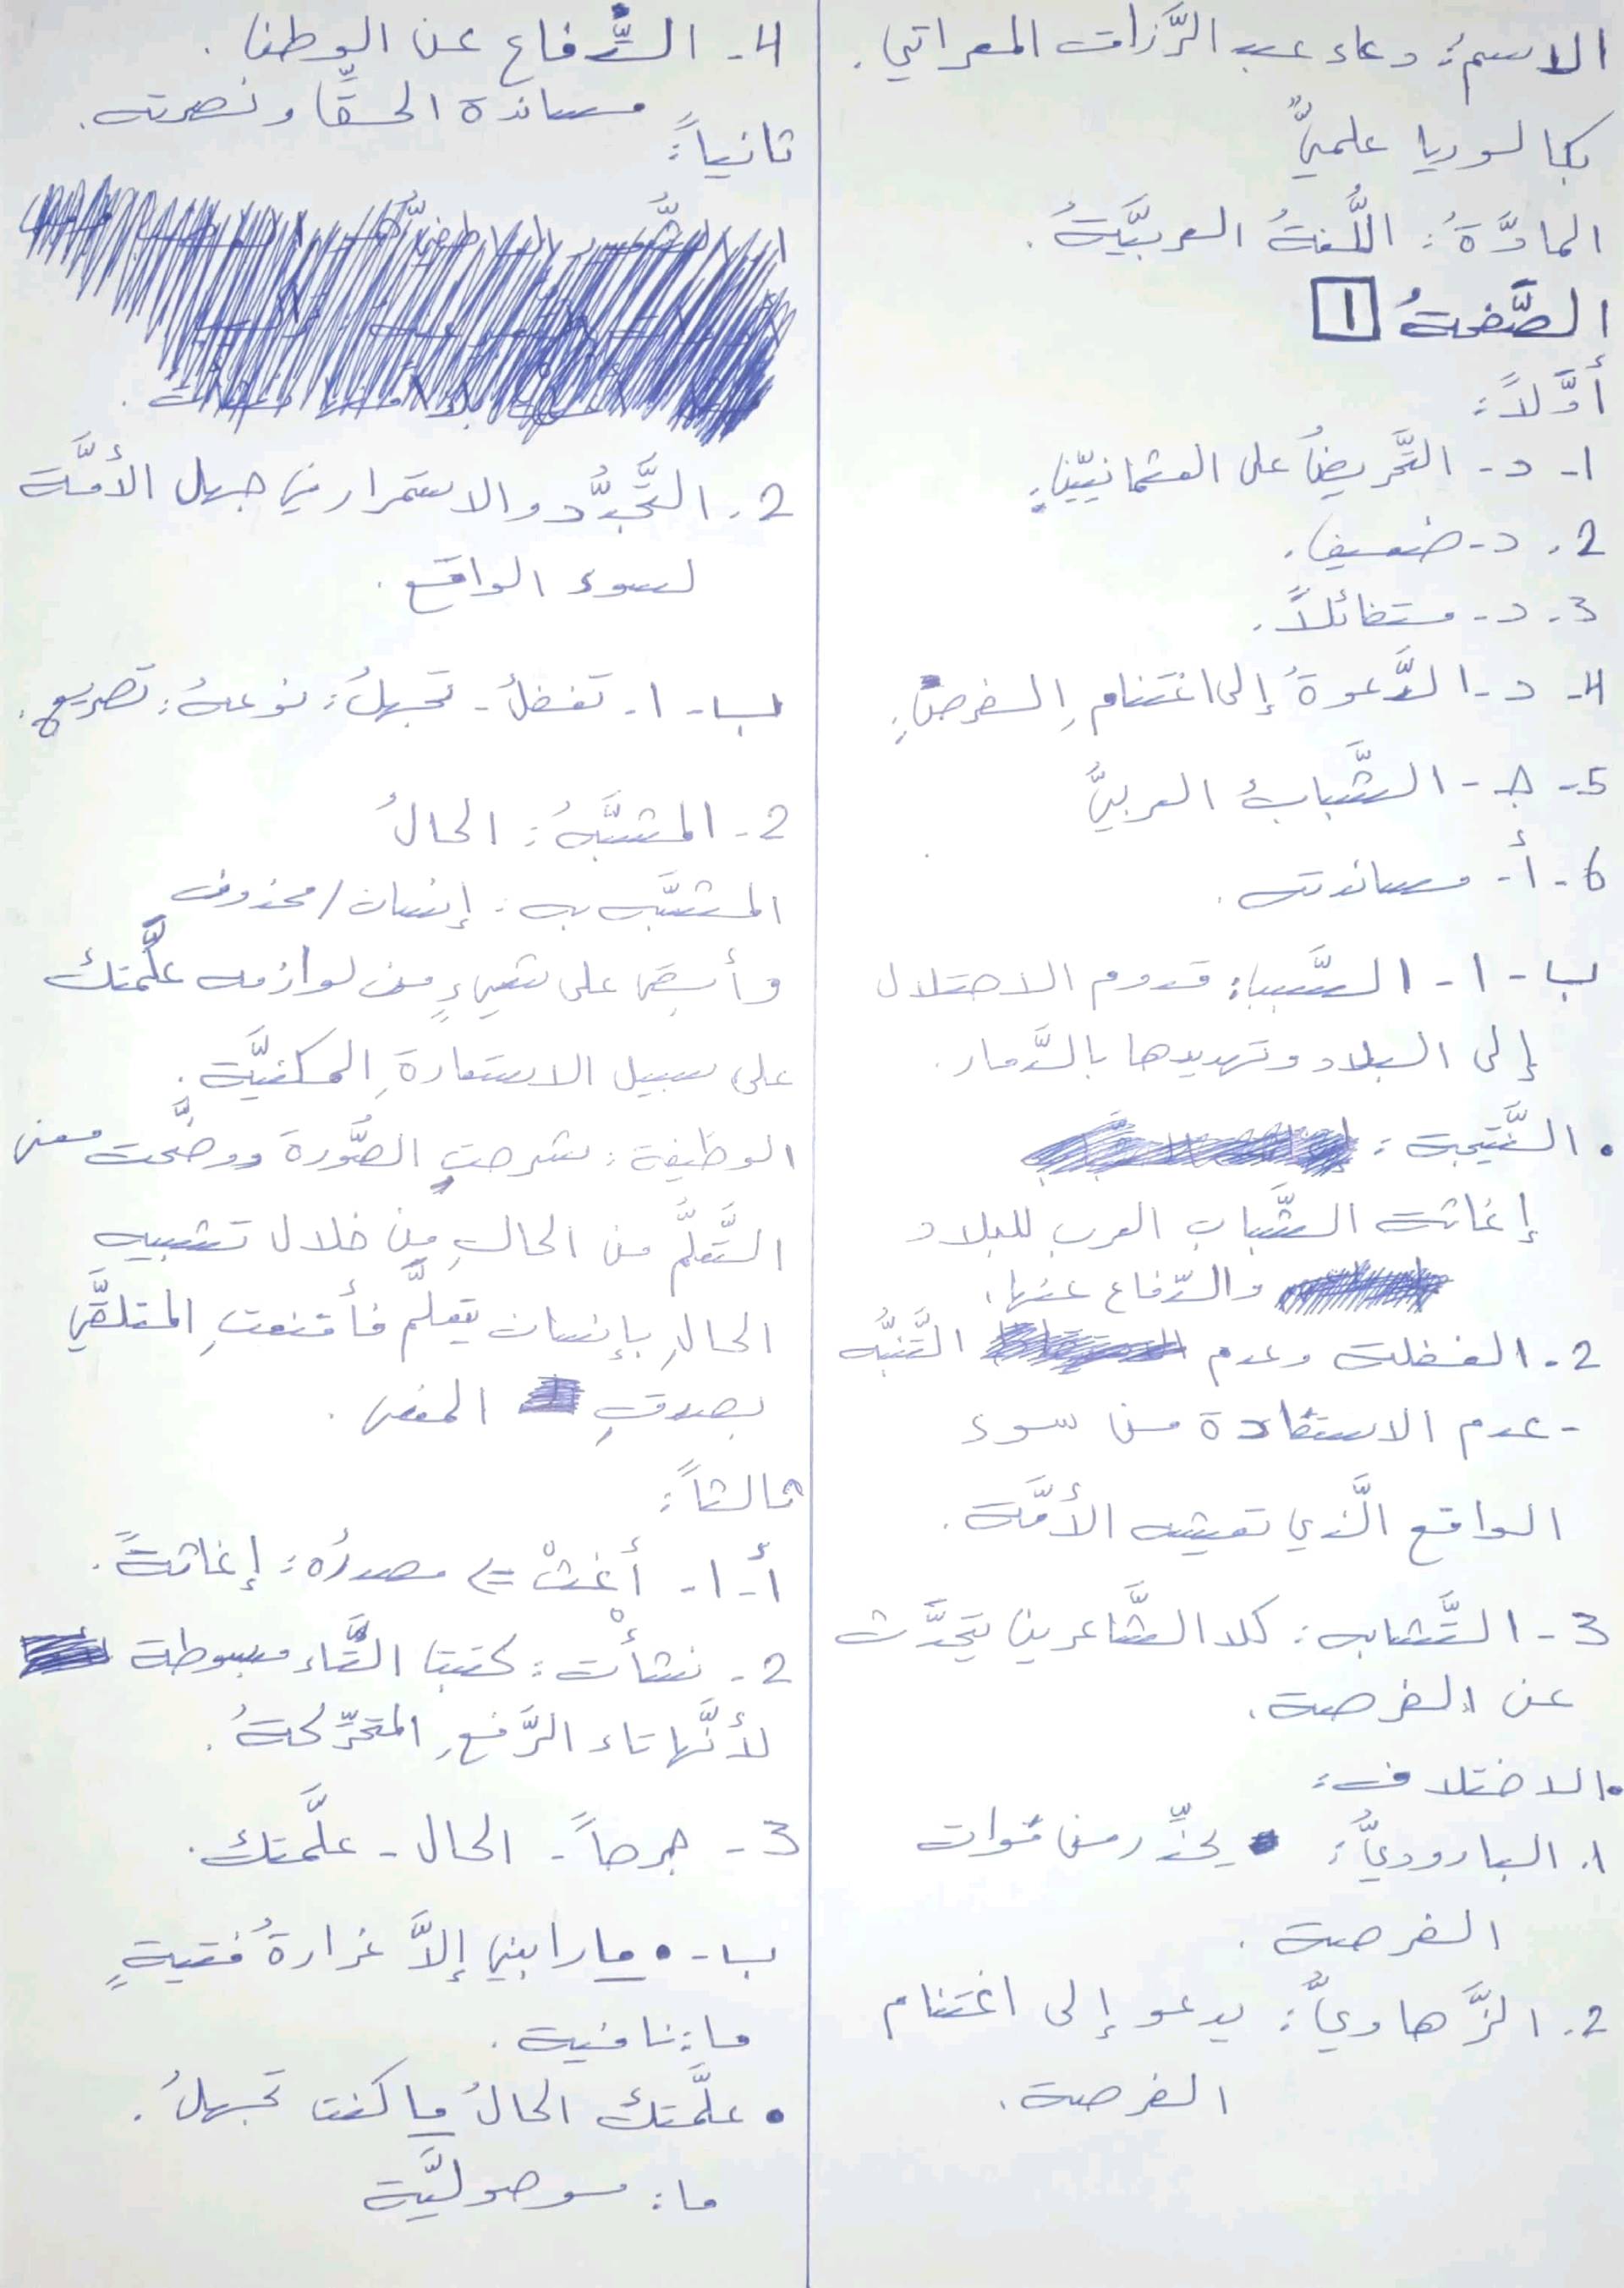 الاسمُ: دعاء عبد الرَّزاق المعراتي.
بكالوريا علميّ
المادَّةُ: اللُّغةُ العربيَّةُ.
الصَّفحةُ 1
أوَّلاً:
1- د- التَّحريضُ على العثمانيّين.
2. د- ضعيف.
3. د- متفائلاً.
4- د- الدَّعوةُ إلى اغتنامِ الفرصِ.
5- ج- الشَّبابُ العربيُّ
6- أ- مساندته.
ب- 1- السَّبب: قدوم الاحتلال
إلى البلاد وتهديدها بالدَّمار.
• النَّتيجة:
إغاثة الشَّباب العرب للبلاد
والدّفاع عنها.
2- الغفلة وعدم التَّنبُّه
- عدم الاستفادة من سوء
الواقع الَّذي تعيشه الأمَّة.
3- التَّشابه: كلا الشَّاعرين يتحدَّث
عن الفرصة.
• الاختلاف:
1. الباروديُّ: يحذِّر من فوات
الفرصة.
2. الزَّهاويُّ: يدعو إلى اغتنام
الفرصة.
4- الدِّفاع عن الوطن.
مساندة الحقِّ ونصرته.
ثانياً:
2. التَّجدُّد والاستمرار في جهل الأمَّة
لسوء الواقع.
ب- 1- تغفلُ- تجهلُ: نوعهُ: تصريع.
2- المشبَّهُ: الحالُ
المشبَّه به: إنسان/محذوف
وأبقى على شيءٍ من لوازمه علَّمتك
على سبيل الاستعارةِ المكنيَّة.
الوظيفة: شرحتِ الصُّورةَ ووضَّحت معنى
التَّعلُّم من الحالِ من خلال تشبيه
الحالِ بإنسان يتعلَّم فأقنعتِ المتلقِّي
بصدقِ المعنى.
ثالثاً:
أ- 1- أغثْ => مصدرُه: إغاثةً.
2- نشأْت: كتبت التَّاء مبسوطة
لأنَّها تاء الرَّفعِ المتحرِّكةُ.
3- جرحاً- الحال- علَّمتك.
ب- • ما رابني إلاَّ غرارةُ فتيةٍ
ما: نافية.
• علَّمتك الحالُ ما كنت تجهلُ.
ما: موصوليَّة